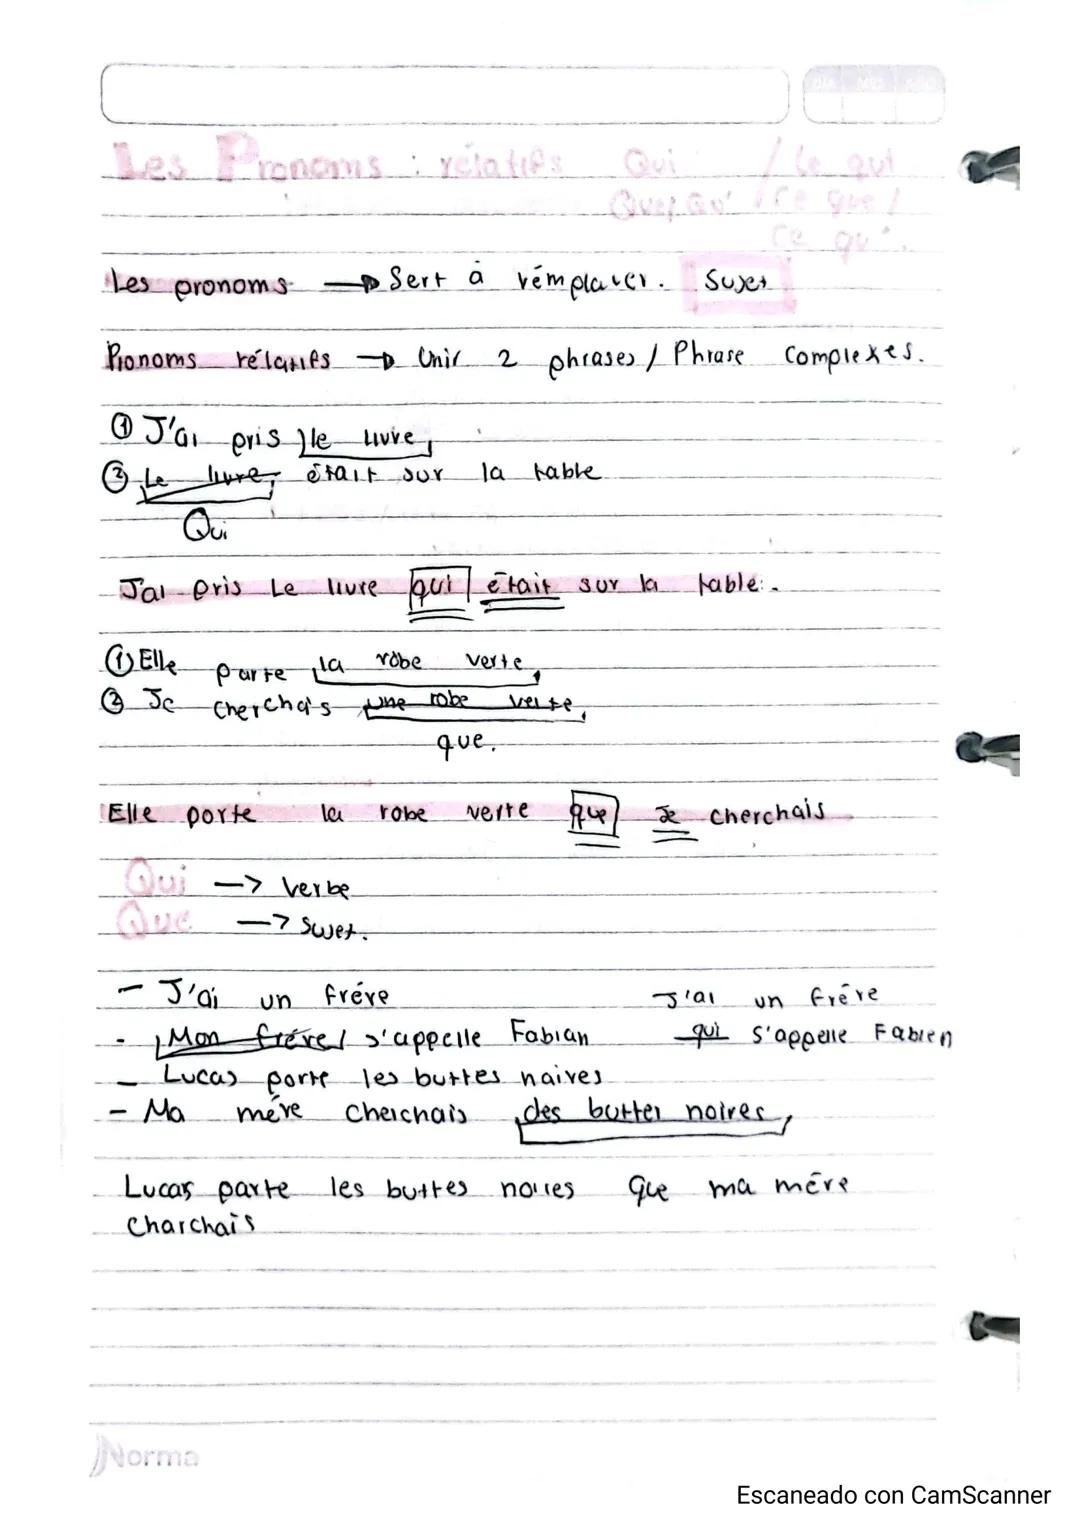 Les Pronoms : rélatifs Qui / Ce qui
Que/ Qu' / Ce que /
Ce qu'.
Les pronoms → Sert à rémplacer. Sujet
Pronoms rélatifs → Unir 2 phrases / Phrase Complexes.
① J'ai pris le livre
② Le livre était sur la table
Qui
J'ai pris Le livre qui était sur la table.
① Elle parte la robe verte
② Je cherchais une robe verte
que.
Elle porte la robe verte que Je cherchais
Qui → Verbe
Que → Sujet.
- J'ai un frére J'ai un frére
- Mon frére s'appelle Fabian qui s'appelle Fabien
- Lucas porte les buttes naires
- Ma mére cherchais des buttes noires
Lucas parte les buttes noires que ma mére
Charchais
Norma
Escaneado con CamScanner